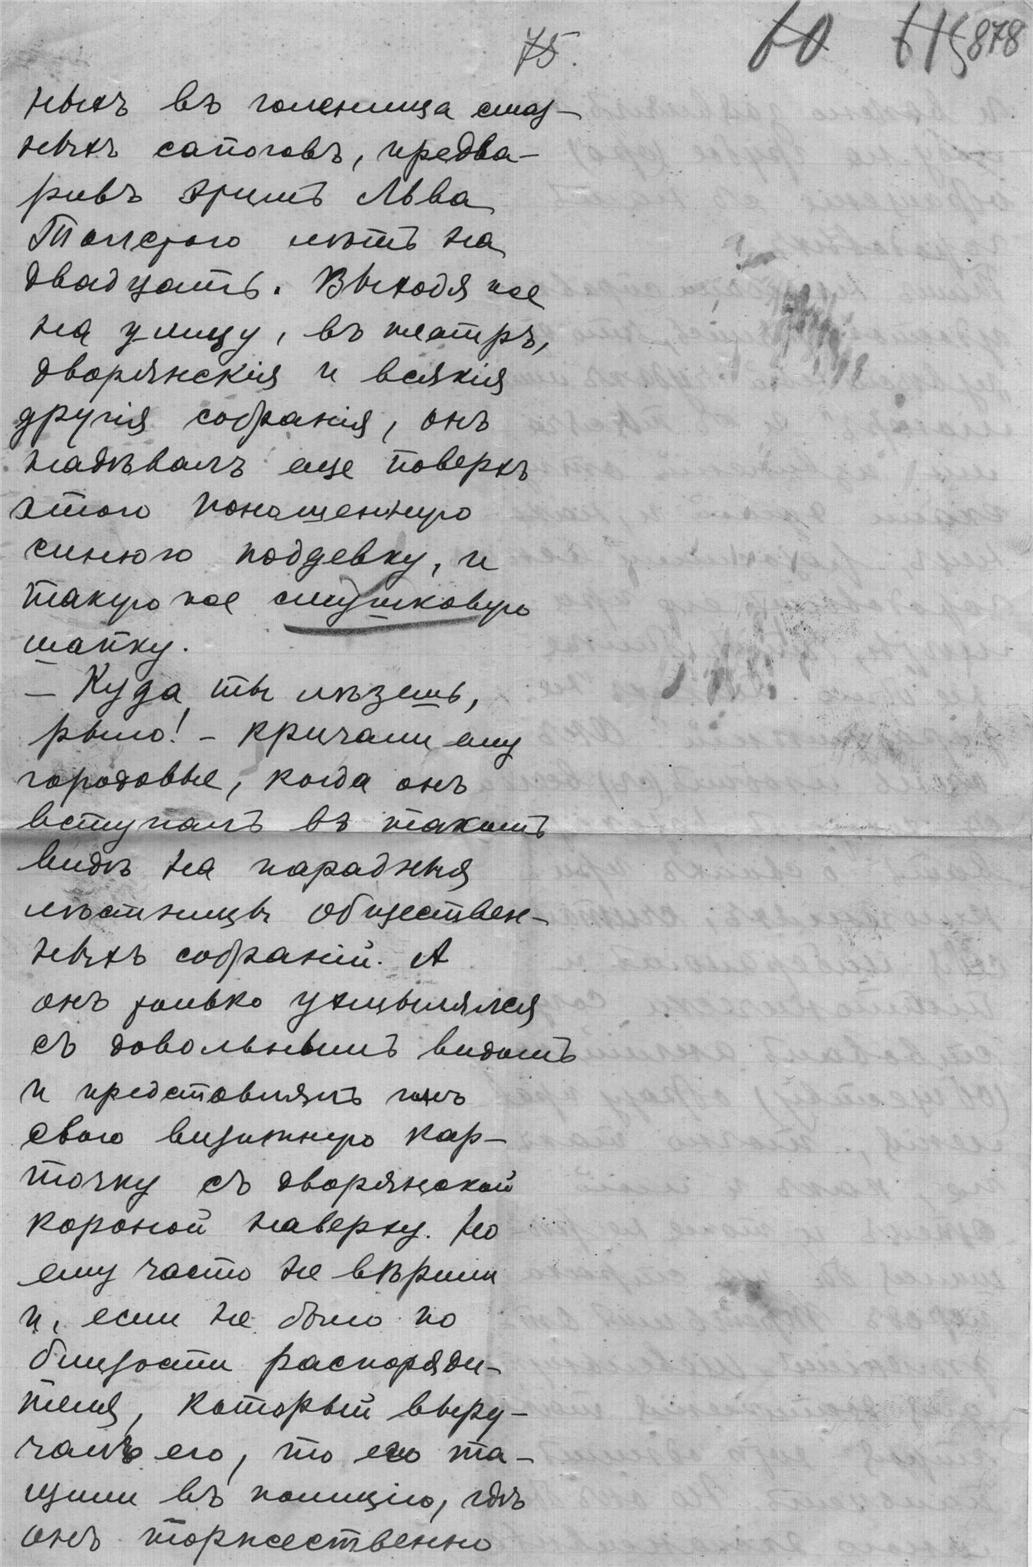 75. 60 615 878
ныхъ въ голенища смаз-
ныхъ сапоговъ, предва-
ривъ этимъ Льва
Толстого лѣтъ на
двадцать. Выходя же
на улицу, въ театръ,
дворянскія и всякія
другія собранія, онъ
надѣвалъ еще поверхъ
этого поношенную
синюю поддевку, и
такую же смушковую
шапку.
— Куда ты лѣзешь,
рыло! — кричали ему
городовые, когда онъ
вступалъ въ такомъ
видѣ на парадныя
лѣстницы обществен-
ныхъ собраній. А
онъ только ухмылялся
съ довольнымъ видомъ
и представлялъ имъ
свою визитную кар-
точку съ дворянской
короной наверху. Но
ему часто не вѣрили
и, если не было по
близости распоряди-
теля, который выру-
чалъ его, то его та-
щили въ полицію, гдѣ
онъ торжественно